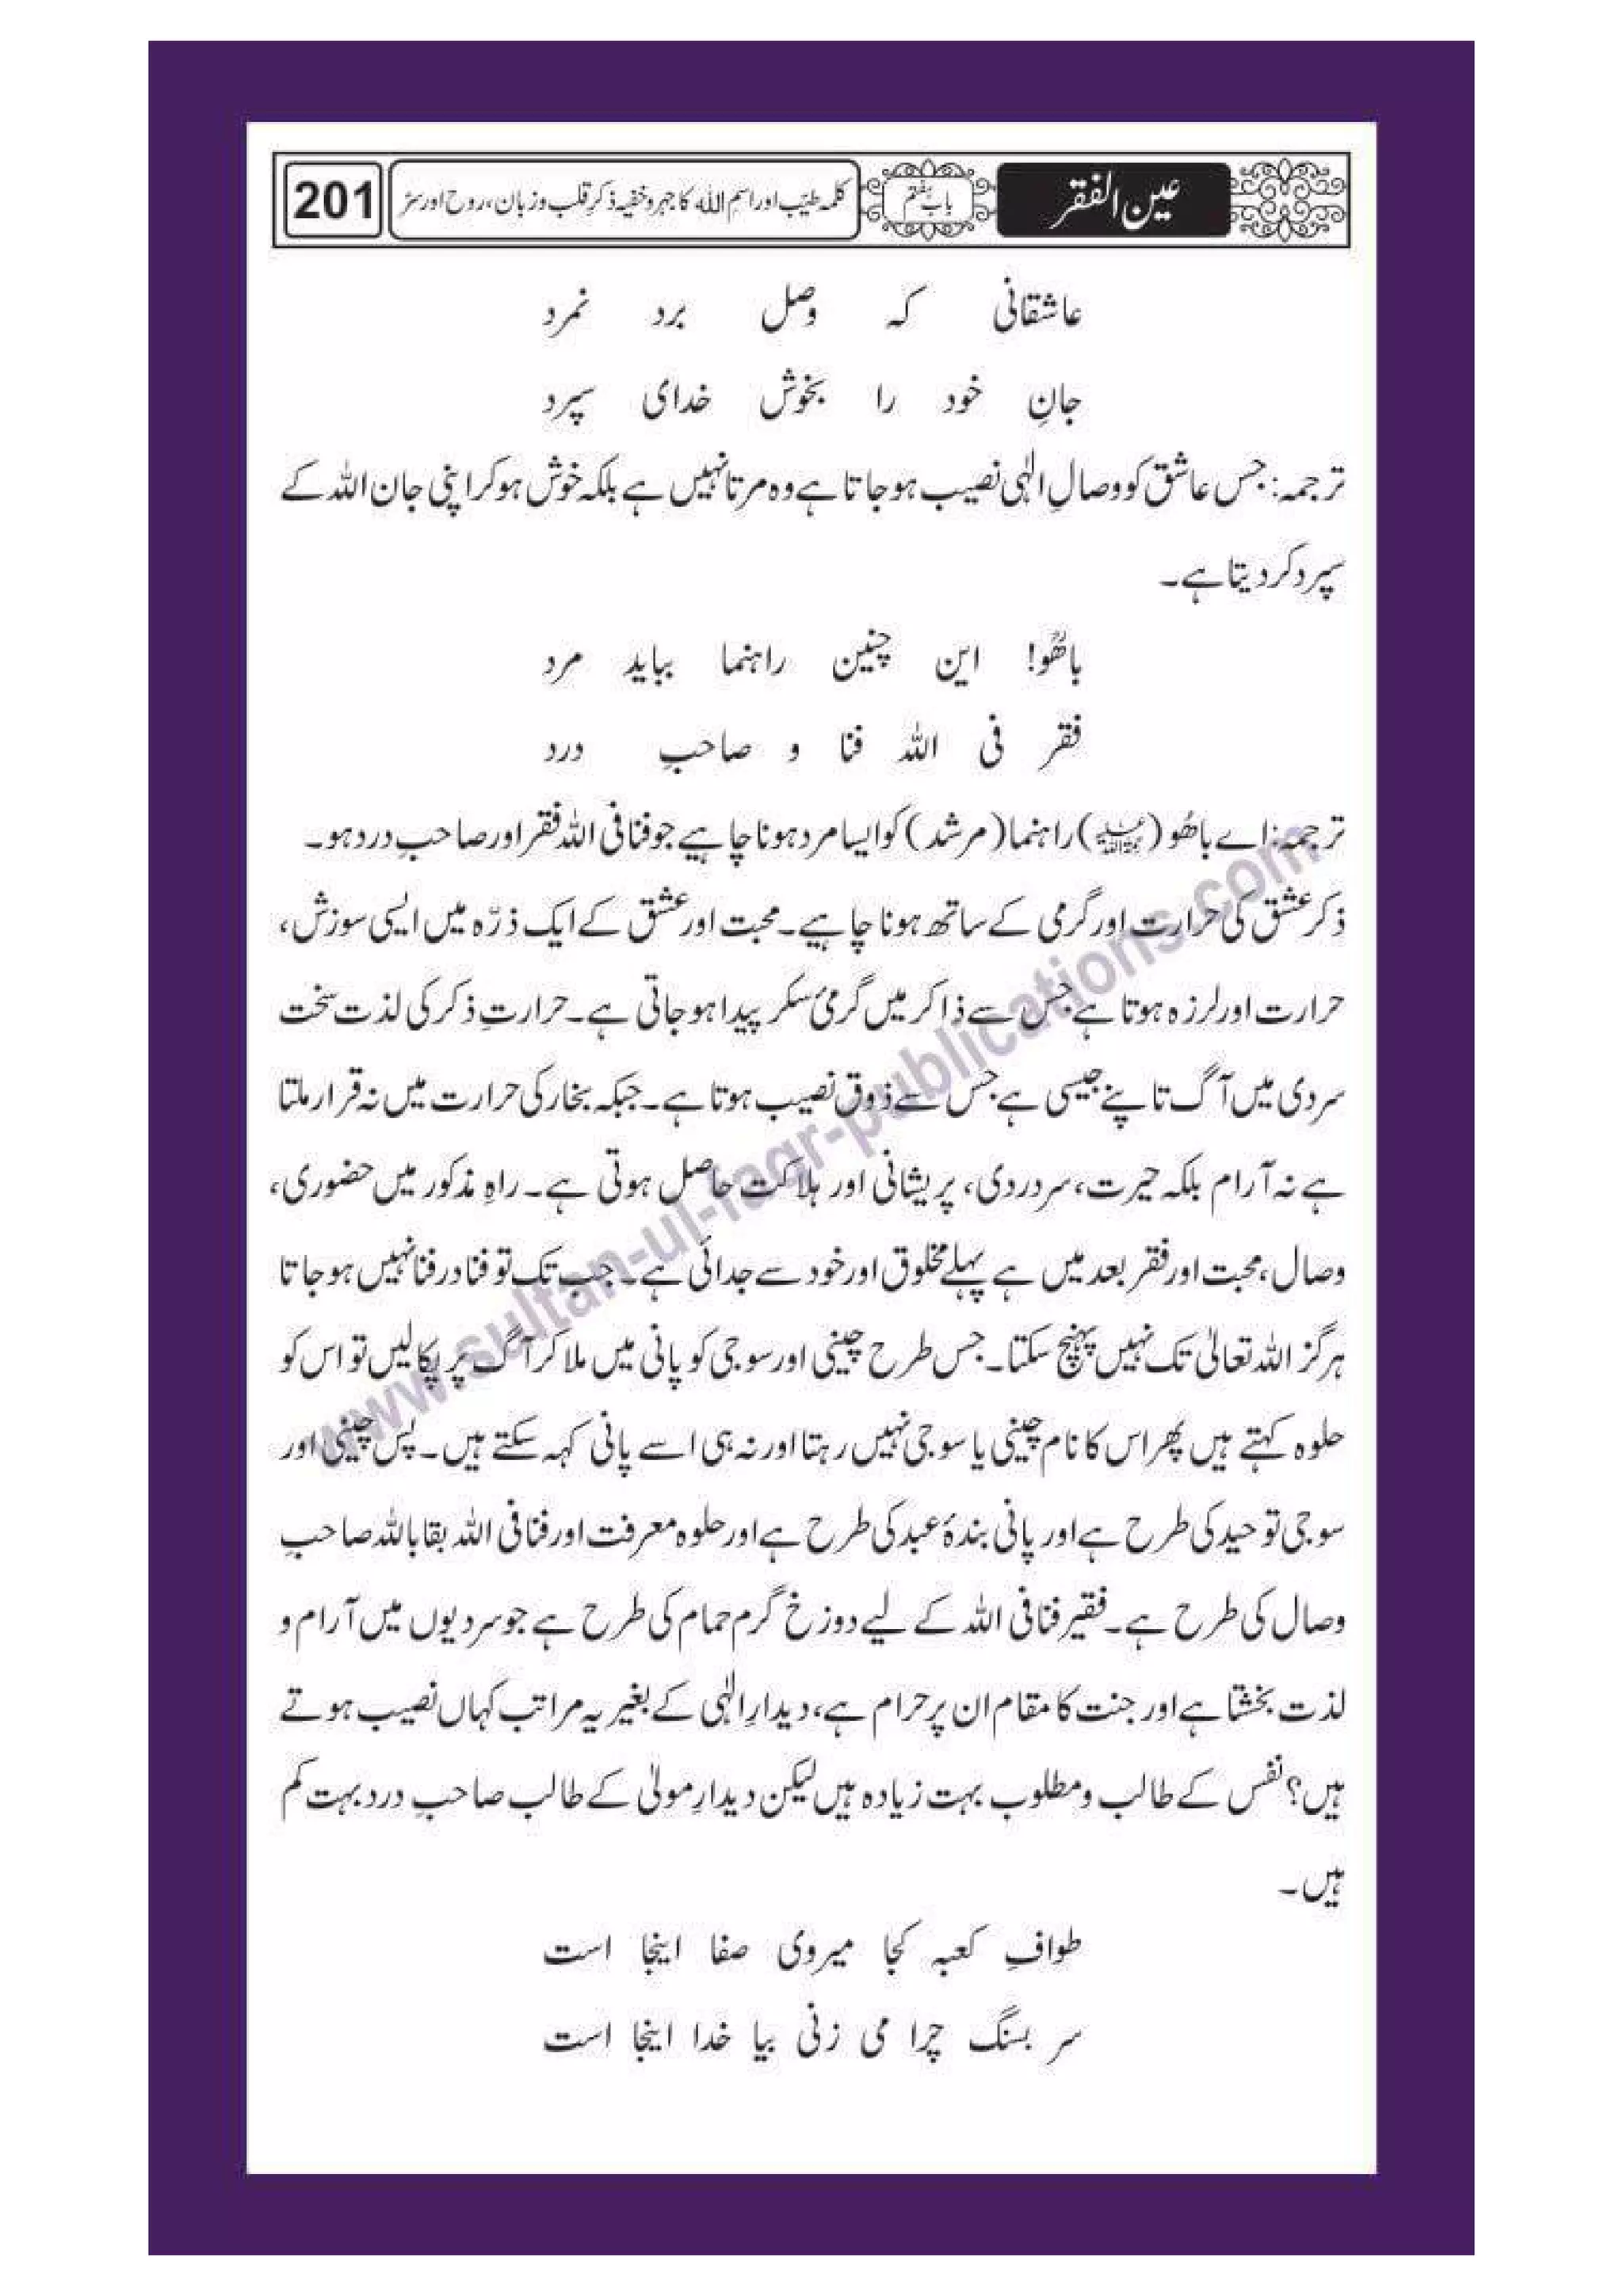 عین الفقر
باب ہفتم
کلمہ طیّب اور اسمِ اللہ کا جہر و خفیہ ذکرِ قلب و زبان، روح اور سرّ
201
عاشقانی کہ وصل برد نمرد
جانِ خود را بخوش خدای سپرد
ترجمہ: جس عاشق کو وصالِ الٰہی نصیب ہو جاتا ہے وہ مرتا نہیں ہے بلکہ خوش ہو کر اپنی جان اللہ کے
سپرد کر دیتا ہے۔
باھُوؒ! این چنین راہنما بباید مرد
فقر فی اللہ فنا و صاحبِ درد
ترجمہ: اے باھُو (رحمتہ اللہ علیہ) راہنما (مرشد) کو ایسا مرد ہونا چاہیے جو فنا فی اللہ فقر اور صاحبِ درد ہو۔
ذکر عشق کی حرارت اور گرمی کے ساتھ ہونا چاہیے۔ محبت اور عشق کے ایک ذرّہ میں ایسی سوزش،
حرارت اور لرزہ ہوتا ہے جس سے ذاکر میں گرمیٔ سکر پیدا ہو جاتی ہے۔ حرارتِ ذکر کی لذت سخت
سردی میں آگ تاپنے جیسی ہے جس سے ذوق نصیب ہوتا ہے۔ جبکہ بخار کی حرارت میں نہ قرار ملتا
ہے نہ آرام بلکہ حیرت، سر دردی، پریشانی اور ہلاکت حاصل ہوتی ہے۔ راہِ مذکور میں حضوری،
وصال، محبت اور فقر بعد میں ہے پہلے مخلوق اور خود سے جدائی ہے۔ جب تک تو فنا در فنا نہیں ہو جاتا
ہرگز اللہ تعالیٰ تک نہیں پہنچ سکتا۔ جس طرح چینی اور سوجی کو پانی میں ملا کر آگ پر پکا لیں تو اس کو
حلوہ کہتے ہیں پھر اس کا نام چینی یا سوجی نہیں رہتا اور نہ ہی اسے پانی کہہ سکتے ہیں۔ پس چینی اور
سوجی توحید کی طرح ہے اور پانی بندۂ عبد کی طرح ہے اور حلوہ معرفت اور فنا فی اللہ بقا باللہ صاحبِ
وصال کی طرح ہے۔ فقیر فنا فی اللہ کے لیے دوزخ گرم حمام کی طرح ہے جو سردیوں میں آرام و
لذت بخشتا ہے اور جنت کا مقام ان پر حرام ہے، دیدارِ الٰہی کے بغیر یہ مراتب کہاں نصیب ہوتے
ہیں؟ نفس کے طالب و مطلوب بہت زیادہ ہیں لیکن دیدارِ مولیٰ کے طالب صاحبِ درد بہت کم
ہیں۔
طوافِ کعبہ کجا میروی صفا اینجا است
سر بسنگ چرا می زنی بیا خدا اینجا است
www.sultan-ul-faqr-publications.com